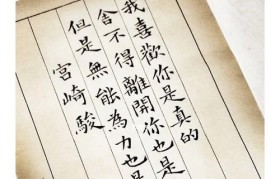 我喜歡你是真的
舍不得離開你也是
但是無能為力也是
宮崎駿